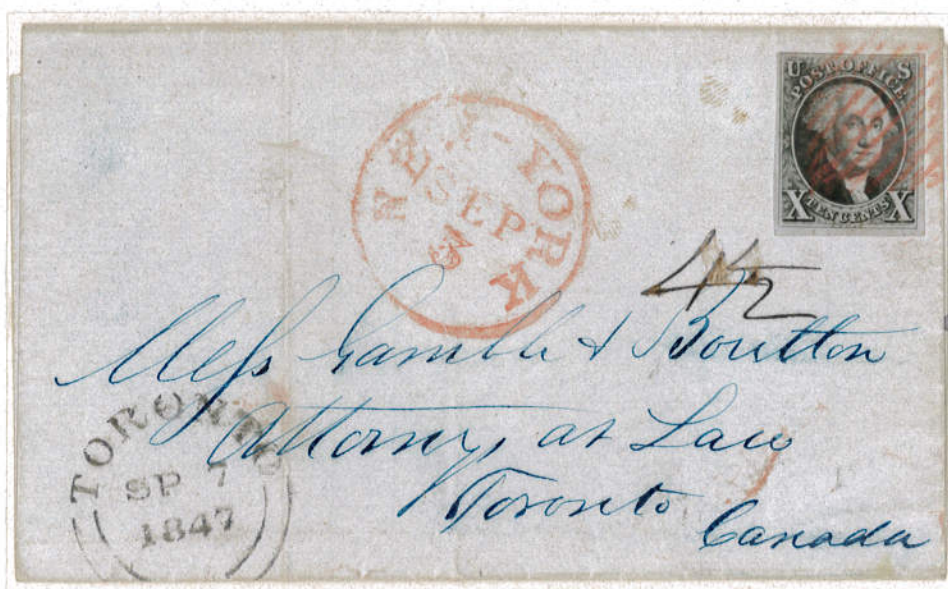 U S
POST OFFICE
X TEN CENTS X
NEW-YORK
SEP
3
4½
Mess Gamble & Boulton
Attorneys at Law
Toronto
Canada
TORONTO
SP 7
1847